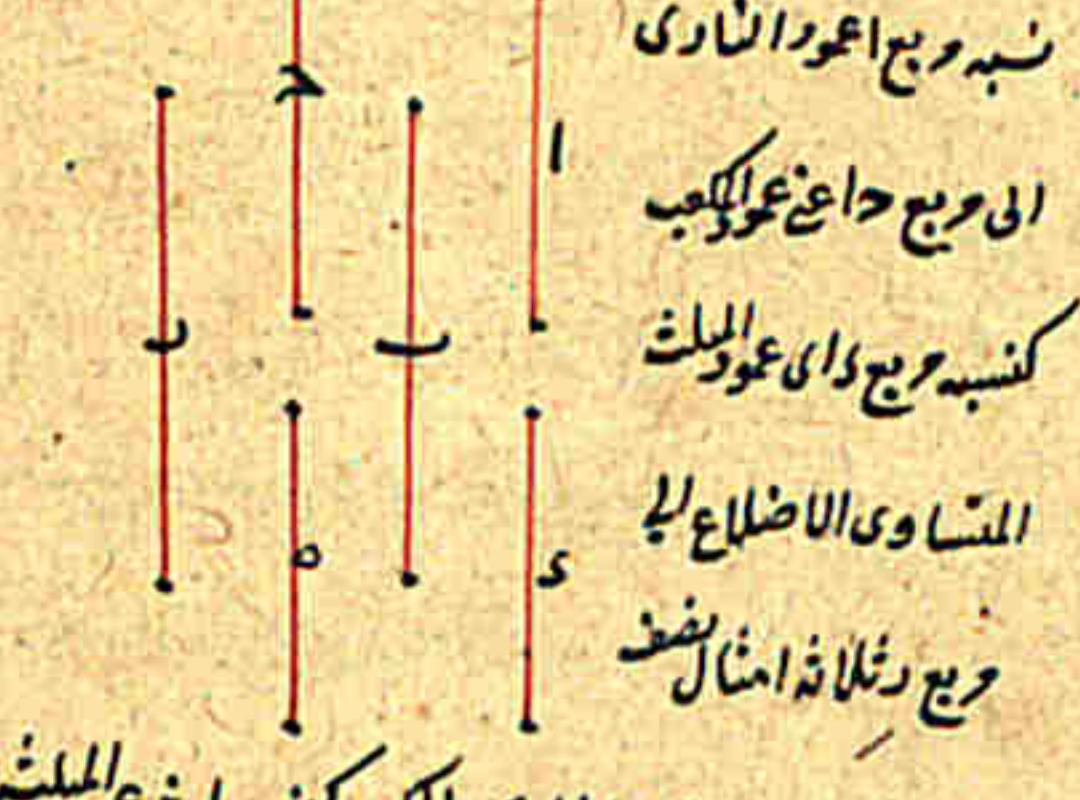 نسبه مربع ا عمود الناری
الی مربع ح اعنی عمود المکعب
کنسبه مربع د ای عمود المثلث
المتساوی الاضلاع الی
مربع ه ثلاثه امثال نصف
ا
ح
ب
ب
د
ه
المثلث